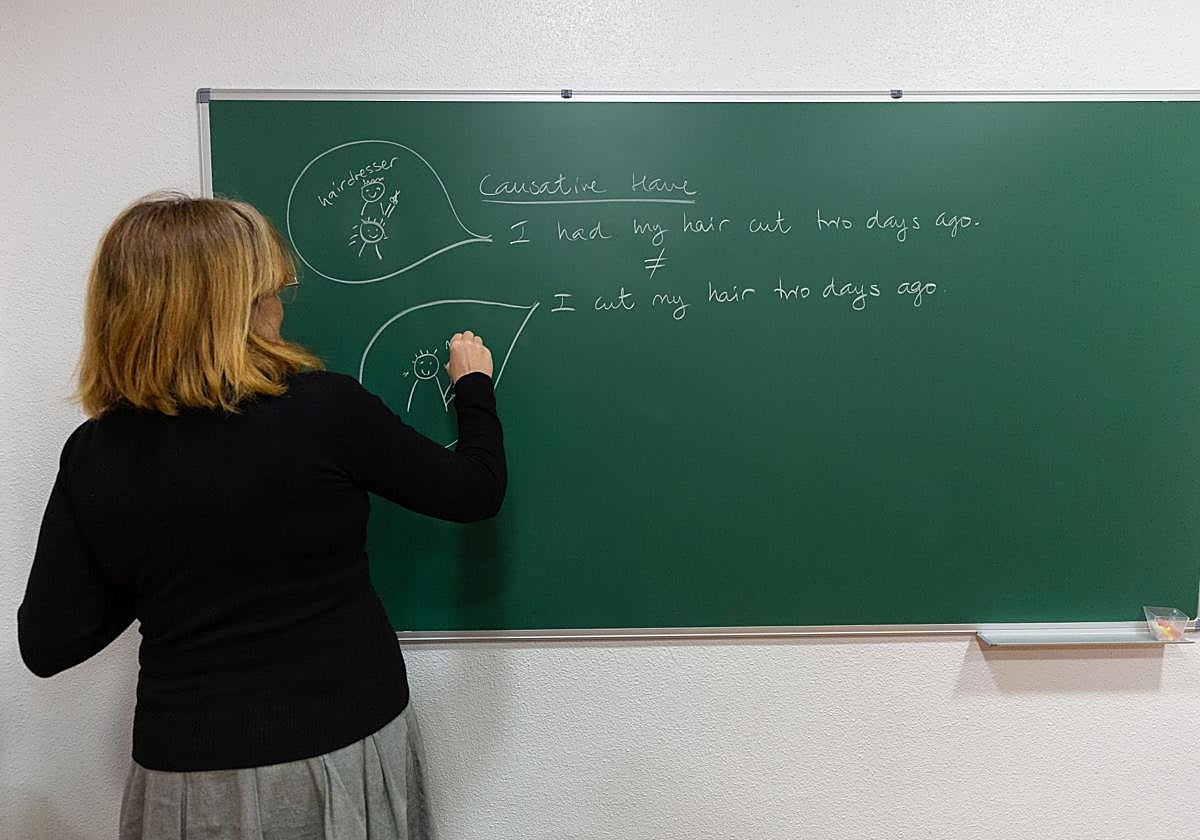 hairdresser
Causative Have
I had my hair cut two days ago.
≠
I cut my hair two days ago.